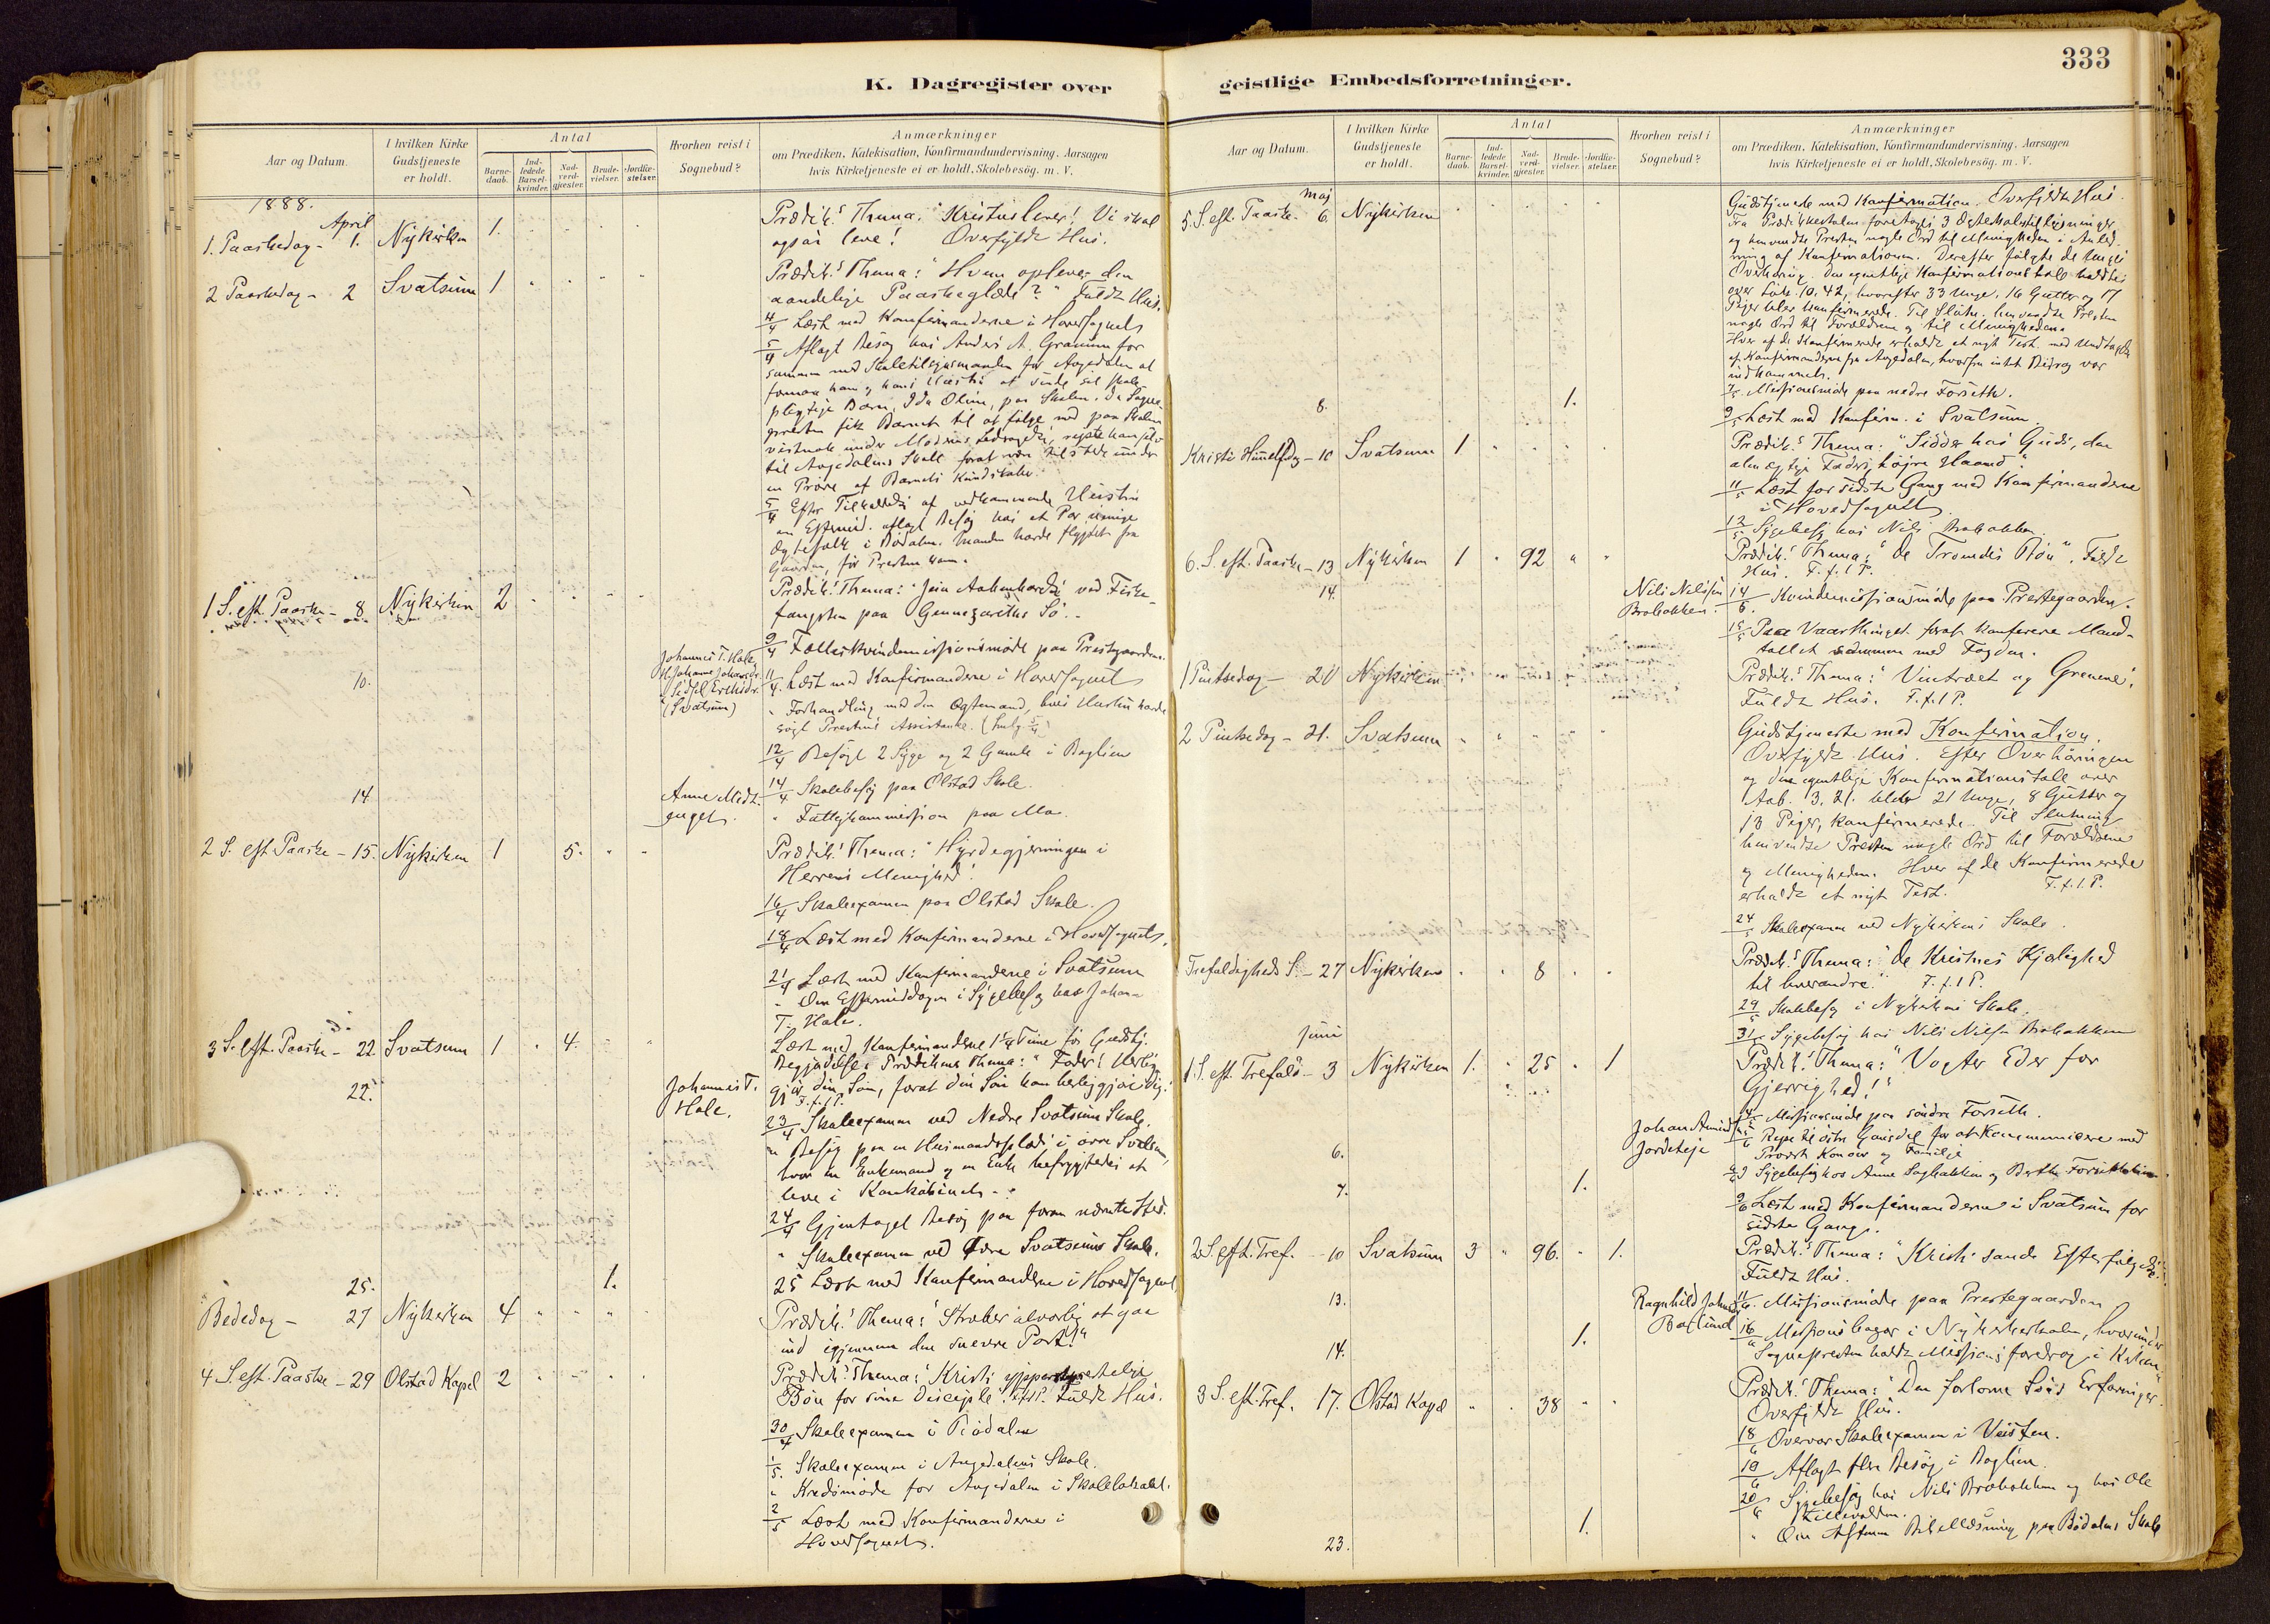 K. Dagregister over
Aar og Datum.
I hvilken Kirke
Gudstjeneste
er holdt.
Antal
Barne-
daab.
Ind-
ledede
Barsel-
kvinder.
Nad-
verd-
gjester.
Brude-
vielser.
Jordfæ-
stelser.
Hvorhen reist i
Sognebud?
Anmærkninger
om Prædiken, Katekisation, Konfirmandundervisning, Aarsagen
hvis Kirketjeneste ei er holdt, Skolebesög, m. V.
1888.
April
1. Paaskedag - 1. Nykirken 1.
Prædik. Thema: "Kristus lever! Vi skal
ogsaa leve! Overfyldt Hus.
2 Paaskedag - 2 Svatsum 1
Prædik. Thema: "Hvem oplever den
aandelige Paaskeglæde?" Fuldt Hus.
4/4 Læst med Konfirmanderne i Hovedsognet
5/4 Aflagt Besøg hos Anders A. for
sammen med Skoletilsynsmanden for Augedalen at
formaa ham og hans Hustru at sende sit skole-
pligtige Barn, Ida Oline, paa Skolen. Da Sogne-
presten fik Barnet til at følge med paa Skolen
under Moderens
til Augedalens Skole forat være tilstede under
en Prøve af Barnets Kundskaber.
5/4 Efter Tilkaldelse af vedkommende Hustru
om Eftermid. aflagt Besøg hos et Par uenige
Ægtefolk i Bødalen. Manden havde flygtet fra
Gaarden, før Presten kom.
1 S. eft. Paaske - 8 Nykirken 2
Prædik. Thema: "Jesu Aabenbarelse ved Fiske-
fangsten paa Gennezareths Sø.
9/4 Fælleskvindemissionsmøde paa Prestegaarden.
10.
Johannes T. Hole
Johanne Johansdr.
Sidsel Eriksdr.
(Svatsum)
11/4. Læst med Konfirmanderne i Hovedsognet
" Forhandling med den Ægtemand, hvis Hustru havde
søgt Prestens Assistance. (5/4)
12/4 Besøgt 2 Syge og 2 Gamle i Baglien
14
Anne Midt-
enget.
14/4 Skolebesøg paa Olstad Skole.
" Fattigkommission paa Mo.
2 S. eft. Paaske - 15. Nykirken 1 5.
Prædik. Thema: "Hyrdegjerningen i
Herrens Menighed.
16/4 Skoleexamen paa Olstad Skole.
18/4 Læst med Konfirmanderne i Hovedsognet.
21/4 Læst med Konfirmanderne i Svatsum
" Om Eftermiddagen i Sygebesøg hos Johan-
T. Hole.
3 S. eft. Paaske - 22. Svatsum 1 4.
Læst med Konfirmanderne 1 1/4 Time før Gudstj.
Begyndelse. Prædikens Thema: "Fader! Herlig-
gjør din Søn, forat din Søn kan herliggjøre dig."
F.f.1P.
22.
Johannes T.
Hole.
23/4 Skoleexamen ved Nedre Svatsums Skole.
" Besøg paa en Husmandsplads i øvre Svatsum,
hvor en Enkemand og en Enke befrygtedes at
leve i Konkubinat.
24/4 Gjentaget Besøg paa foran nævnte Sted.
" Skoleexamen ved Øvre Svatsums Skole.
25. 1.
25 Læst med Konfirmanderne i Hovedsognet
Bededag - 27 Nykirken 4
Prædik. Thema: "Stræber alvorlig at gaa
ind igjennem den snevre Port!"
4 S. eft. Paaske - 29 Olstad Kapel 2
Prædik. Thema: "Kristi ypperstepresteligt
Bøn for sine Disciple". F.f.1P. Fuldt Hus.
30/4 Skoleexamen i Bødalen
1/5. Skoleexamen i Augedalens Skole.
" Kredsmøde for Augedalen i Skolelokalet.
2/5 Læst med Konfirmanderne i
Hovedsognet.
333
geistlige Embedsforretninger.
Aar og Datum.
I hvilken Kirke
Gudstjeneste
er holdt.
Antal
Barne-
daab.
Ind-
ledede
Barsel-
kvinder.
Nad-
verd-
gjester.
Brude-
vielser.
Jordfæ-
stelser.
Hvorhen reist i
Sognebud?
Anmærkninger
om Prædiken, Katekisation, Konfirmandundervisning, Aarsagen
hvis Kirketjeneste ei er holdt, Skolebesög, m. V.
Maj
5. S. eft. Paaske - 6. Nykirken
Gudstjeneste med Konfirmation. Overfyldt Hus.
Fra Prædikestolen foretoges 3 Ægteskabstillysninger
og henvendte Presten nogle Ord til Menigheden i Anled-
ning af Konfirmationen. Derefter fulgte de Unges
Overhøring. Den egentlige Konfirmationstale holdtes
over Luk. 10.42, hvorefter 33 Unge, 16 Gutter og 17
Piger blev konfirmerede. Til Slut henvendte Presten
nogle Ord til Forældrene og til Menigheden.
Hver af de Konfirmerede erholdt et nyt Test. med Undtagelse
af Konfirmanderne fra Augedalen, hvorfra intet Bidrag var
indkommet.
7/5 Missionsmøde paa nedre Forseth.
8. 1.
9/5 Læst med Konfirm. i Svatsum.
Kristi Himmelfdag - 10 Svatsum 1
Prædik. Thema: "Sidder hos Guds, den
almægtige Faders, højre Haand."
11/5 Læst for sidste Gang med Konfirmanderne
i Hovedsognet.
12/5 Sygebesøg hos Nils Brobakken.
6. S. eft. Paaske - 13 Nykirken 1 92
Prædik. Thema: "De Troendes Bøn". Fuldt
Hus. F.f.1P.
14.
Nils Nilssen
Brobakken.
14/5. Kvindemissionsmøde paa Prestegaarden.
15/5 Paa Vaarthinget forat konferere Mand-
tallet sammen med Fogden.
1 Pintsedag - 20 Nykirken
Prædik. Thema: "Vintræet og Grenene".
Fuldt Hus. F.f.1P.
2 Pintsedag - 21. Svatsum
Gudstjeneste med Konfirmation.
Overfyldt Hus. Efter Overhøringen
og den egentlige Konfirmationstale over
Aab. 3, 21. blev 21 Unge, 8 Gutter og
13 Piger, konfirmerede. Til Slutning
henvendte Presten nogle Ord til Forældrene
og Menigheden. Hver af de Konfirmerede
erholdt et nyt Test. F.f.1.P.
24/5 Skoleexamen ved Nykirkens Skole.
Trefoldigheds S. - 27 Nykirken 8
Prædik. Thema: "De Kristnes Kjærlighed
til hverandre." F.f.1P.
29/5 Skolebesøg i Nykirkens Skole.
31/5 Sygebesøg hos Nils Nilsen Brobakken
Juni
1. S. eft. Trefold. - 3 Nykirken 1. 25 1
Prædik. Thema: "Vogter Eder for
Gjerrighed!"
4/6 Missionsmøde paa søndre Forseth.
Johan Amundsen
Jordeteje
5/6 Rejse til østre Gausdal for at kommunicere med
Provst Konow og Familje
6.
Sygebesøg hos Anne Sagbakken og Berthe Forsethbakken.
7. 1.
9/6 Læst med Konfirmanderne i Svatsum for
sidste Gang.
2 S. eft. Tref. - 10 Svatsum 3 96. 1.
Prædik. Thema: "Kristi sande Efterfølgelse.
Fuldt Hus.
13.
Ragnhild Johansdr.
Baglund
11/6. Missionsmøde paa Prestegaarden
14. 1.
16/6 Missionsbazar i Nykirkeskolen, hvorunder
Sognepresten holdt Missionsforedrag i Kirken
3 S. eft. Tref. 17. Olstad Kapel 38
Prædik. Thema: "Den forlorne Søns Erfaringer.
Overfyldt Hus.
18/6 Overvar Skoleexamen i Veisten.
19/6 Aflagt flere Besøg i Baglien.
20/6 Sygebesøg hos Nils Brobakken og hos Ole
Killivolden.
23. 1.
" Om Aftenen Bibellæsning paa Bødalens Skole